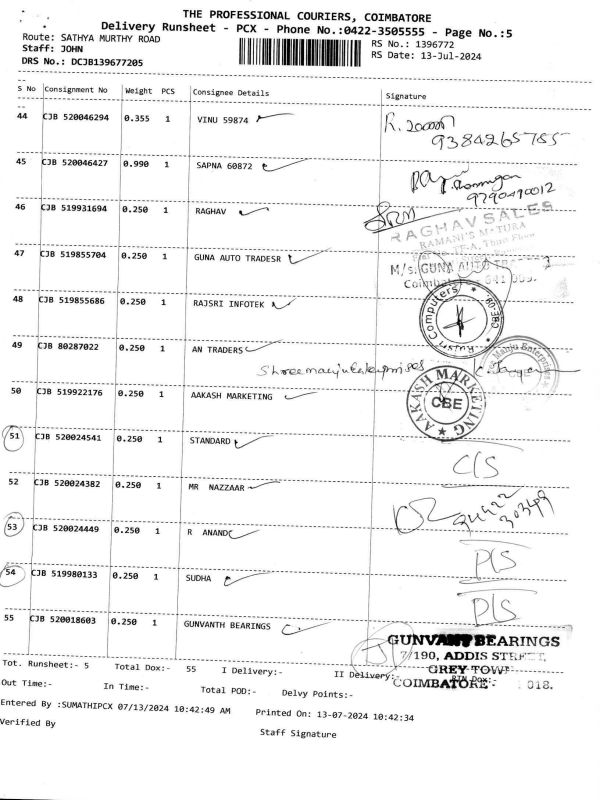 THE PROFESSIONAL COURIERS, COIMBATORE
Delivery Runsheet - PCX - Phone No.:0422-3505555 - Page No.:5
Route: SATHYA MURTHY ROAD
RS No.: 1396772
Staff: JOHN
RS Date: 13-Jul-2024
DRS No.: DCJB139677205
S No Consignment No Weight PCS Consignee Details Signature
44 CJB 520046294 0.355 1 VINU 59874
9384265785
45 CJB 520046427 0.990 1 SAPNA 60872
9790490012
46 CJB 519931694 0.250 1 RAGHAV
RAGHAV SALES
47 CJB 519855704 0.250 1 GUNA AUTO TRADESR
M/s. GUNA AUTO
48 CJB 519855686 0.250 1 RAJSRI INFOTEK
Rajsri Computers CBE-08
49 CJB 80287022 0.250 1 AN TRADERS
Manju Enterprises
50 CJB 519922176 0.250 1 AAKASH MARKETING
AAKASH MARKETING
CBE
51 CJB 520024541 0.250 1 STANDARD
C/S
52 CJB 520024382 0.250 1 MR NAZZAAR
53 CJB 520024449 0.250 1 R ANAND
P/S
54 CJB 519980133 0.250 1 SUDHA
P/S
55 CJB 520018603 0.250 1 GUNVANTH BEARINGS
GUNVANT BEARINGS
7/190, ADDIS STREET,
GREY TOWN
COIMBATORE - 018.
Tot. Runsheet:- 5 Total Dox:- 55 I Delivery:- II Delivery:-
Out Time:- In Time:- Total POD:- Delvy Points:-
Entered By :SUMATHIPCX 07/13/2024 10:42:49 AM Printed On: 13-07-2024 10:42:34
Verified By
Staff Signature